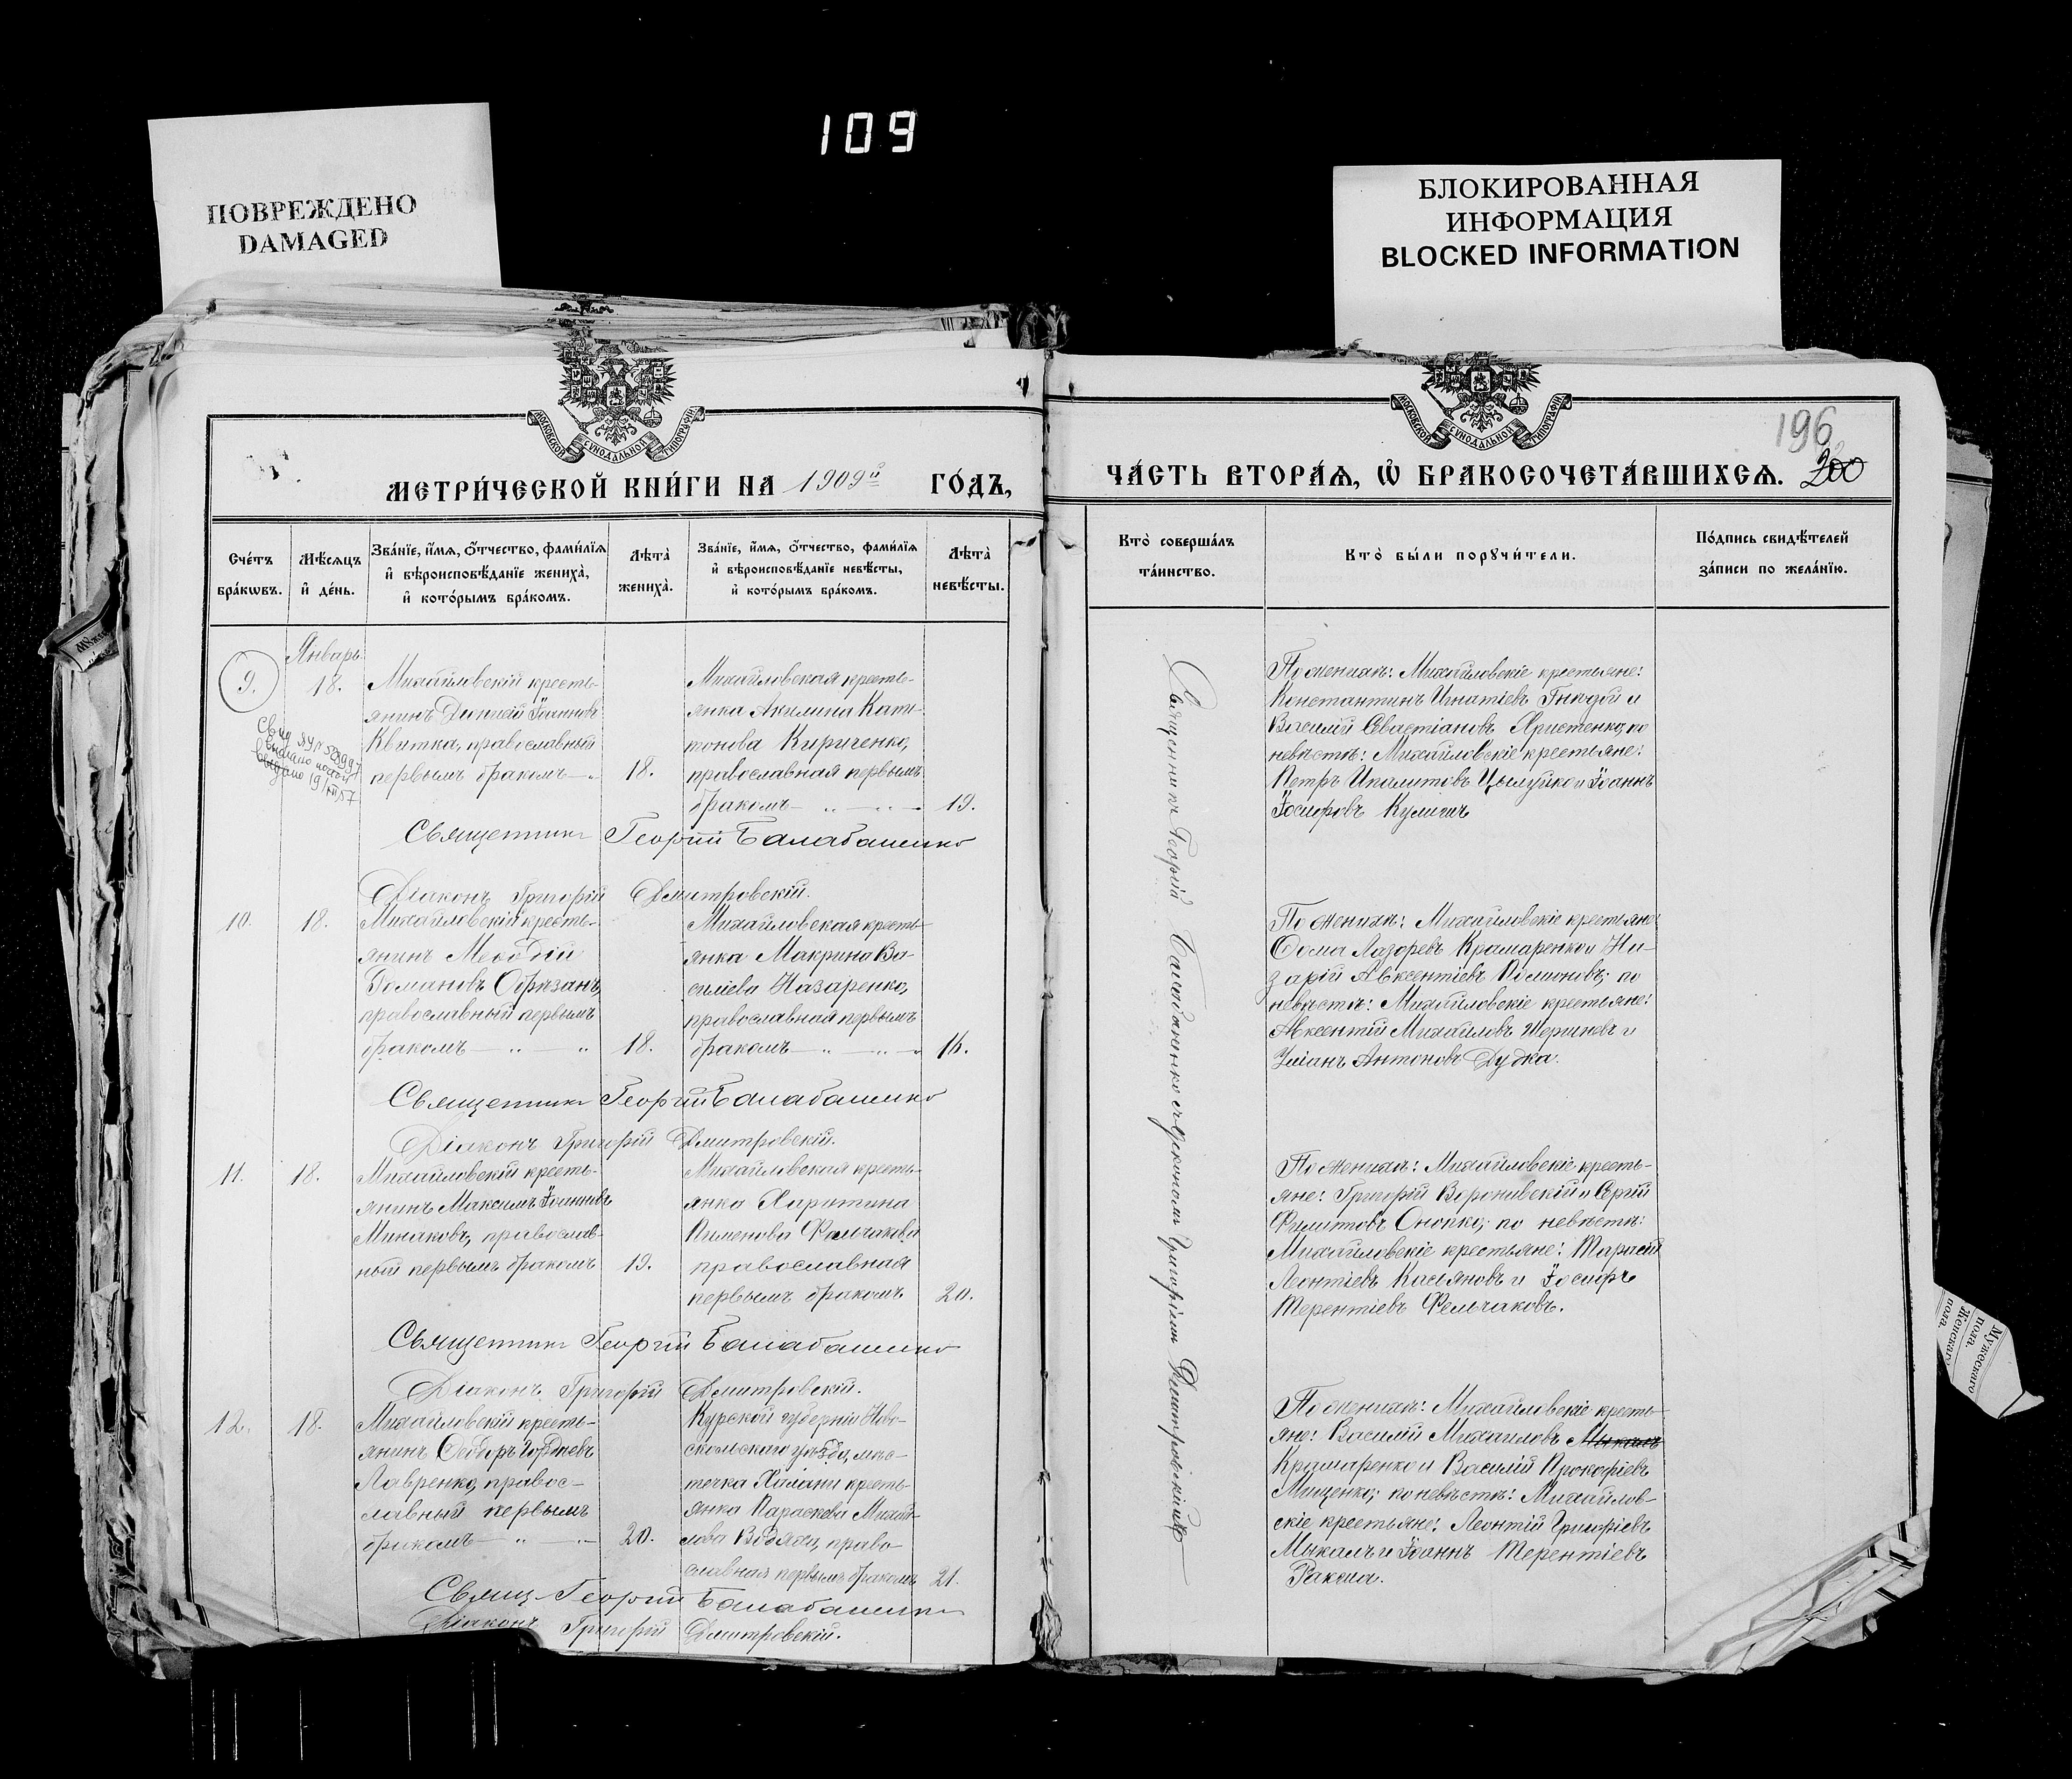 109
ПОВРЕЖДЕНО
DAMAGED
БЛОКИРОВАННАЯ
ИНФОРМАЦИЯ
BLOCKED INFORMATION
МОСКОВСКОЙ СѴНОДАЛЬНОЙ ТИПОГРАФІИ
МЕТРИ́ЧЕСКОЙ КНИ́ГИ НА 1909й ГО́ДЪ,
Сче́тъ бра́кѡвъ.
Мѣ́сѧцъ и҆ де́нь.
Зва́нїе, и҆́мѧ, ѻ҆́тчество, фами́лїѧ и҆ вѣроисповѣ́данїе жениха̀, и҆ кото́рымъ бра́комъ.
Лѣ́та жениха̀.
Зва́нїе, и҆́мѧ, ѻ҆́тчество, фами́лїѧ и҆ вѣроисповѣ́данїе невѣ́сты, и҆ кото́рымъ бра́комъ.
Лѣ́та невѣ́сты.
9.
Январь
18.
Михайловскій кресть-
янинъ Іоанновъ
Квитка, православный
первымъ бракомъ
18.
Михайловская кресть-
янка Акилина Капи-
тонова Кириченко,
православная первымъ
бракомъ
19.
Священникъ Георгій Балабаненко
Діаконъ Григорій Дмитровскій.
10.
18.
Михайловскій кресть-
янинъ Меѳодій
Романовъ
православный первымъ
бракомъ
18.
Михайловская кресть-
янка Макрина Ва-
силіева Назаренко,
православная первымъ
бракомъ
16.
Священникъ Георгій Балабаненко
Діаконъ Григорій Дмитровскій.
11.
18.
Михайловскій кресть-
янинъ Максимъ Іоанновъ
Минаковъ, православ-
ный первымъ бракомъ
19.
Михайловская кресть-
янка Харитина
Пименова Фельчакова
православная
первымъ бракомъ
20.
Священникъ Георгій Балабаненко
Діаконъ Григорій Дмитровскій.
12.
18.
Михайловскій кресть-
янинъ Ѳеодоръ Гордѣевъ
Лавренко, правос-
лавный первымъ
бракомъ
20.
Курской губерніи Ново-
скольскаго уѣзда, мѣс-
течка Халани кресть-
янка Параскева Михай-
лова православная
первымъ бракомъ
21.
Свящ. Георгій Балабаненко
Діаконъ Григорій Дмитровскій.
МОСКОВСКОЙ СѴНОДАЛЬНОЙ ТИПОГРАФІИ
196
200
ЧА́СТЬ ВТОРА́Ѧ, Ѡ҆ БРАКОСОЧЕТА́ВШИХСѦ.
Кто̀ соверша́лъ та́инство.
Кто̀ бы́ли порꙋчи́тели.
По́дпись свидѣ́телей за́писи по жела́нїю.
Священникъ Георгій Балабаненко съ діакономъ Григоріемъ Дмитровскимъ
По женихѣ: Михайловскіе крестьяне:
Константинъ Игнатіевъ Гнидой и
Василій Севастіановъ Христенко, по
невѣстѣ: Михайловскіе крестьяне:
Петръ Ипалитовъ Цылуйко и Іоаннъ
Іосифовъ Куличъ
По женихѣ: Михайловскіе крестьяне:
Ѳома Лазоревъ Крамаренко и На-
зарій Авксентіевъ по
невѣстѣ: Михайловскіе крестьяне:
Авксентій Михайловъ и
Уліанъ Антоновъ Дудка.
По женихѣ: Михайловскіе кресть-
яне: Григорій Воронивскій и Сергій
Филиповъ Онопко; по невѣстѣ:
Михайловскіе крестьяне: Тарасій
Леонтіевъ Касьяновъ и Іосифъ
Терентіевъ Фельчаковъ.
По женихѣ: Михайловскіе кресть-
яне: Василій Михаиловъ Мыкалъ
Крамаренко и Василій Прокофіевъ
Мищенко; по невѣстѣ: Михайлов-
скіе крестьяне: Леонтій Григоріевъ
Мыкалъ и Іоаннъ Терентіевъ
Ракша.
Мужескаго пола.
Женскаго пола.